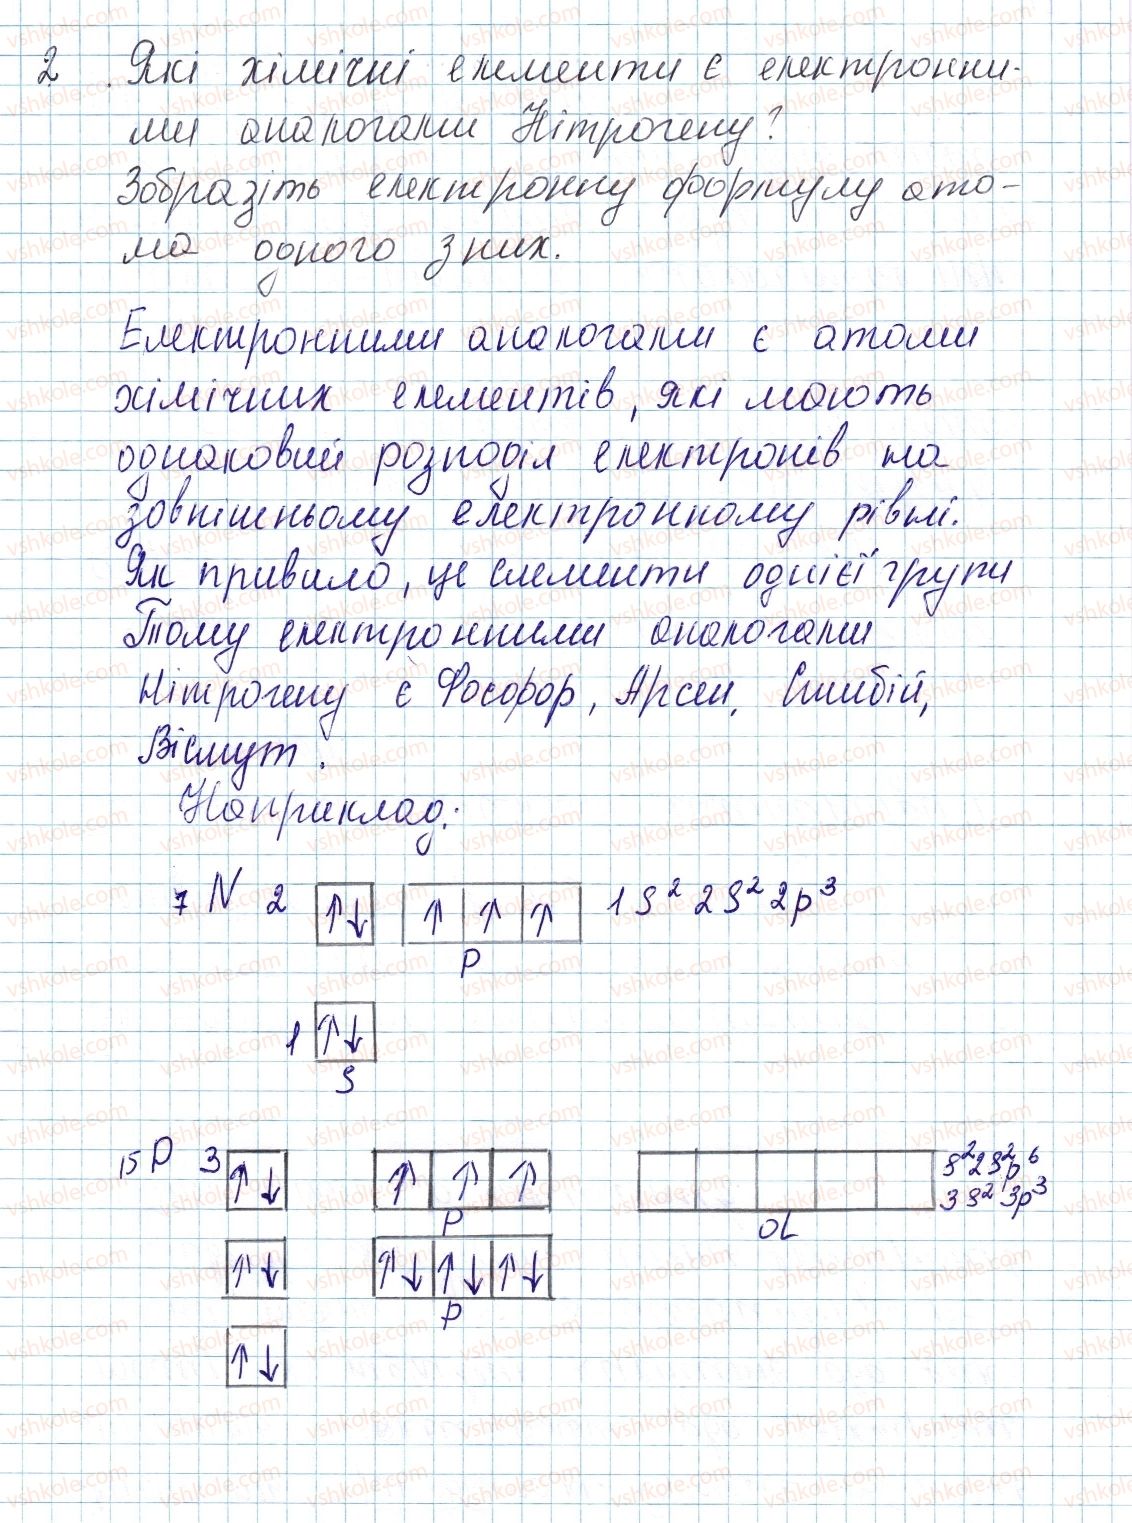 2. Які хімічні елементи є електронни-
ми аналогами Нітрогену?
Зобразіть електронну формулу ато-
ма одного з них.
Електронними аналогами є атоми
хімічних елементів, які мають
однаковий розподіл електронів на
зовнішньому електронному рівні.
Як правило, це елементи однієї групи
Тому електронними аналогами
Нітрогену є Фосфор, Арсен, Стибій,
Вісмут.
Наприклад:
7 N 2 ↑↓ ↑ ↑ ↑ 1S² 2S² 2p³
p
1 ↑↓
S
15 P 3 ↑↓ ↑ ↑ ↑ S² 2S² p⁶
3S² 3p³
p d
↑↓ ↑↓ ↑↓ ↑↓
p
↑↓